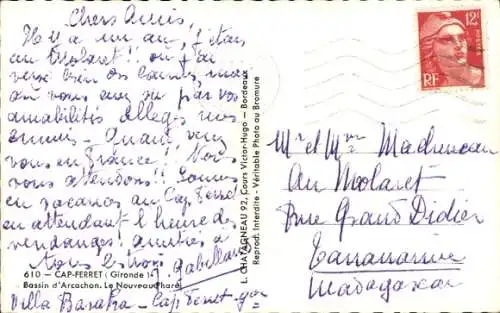 Chers Amis,
Il y a un an, j'étais
au Molaret !! où j'ai
versé bien des larmes, mais
où vous avez su par vos
amabilités alléger nos
ennuis - Quand
vous en France ! Nous
vous attendons !! Sommes
en vacances au Cap Ferret
en attendant l'heure des
vendanges! amitiés à
Tous les trois
J. Gabellan
610 - CAP-FERRET (Gironde)
Bassin d'Arcachon. Le Nouveau Phare
Villa Baraka - Cap Ferret
L. CHATAGNEAU 92, Cours Victor-Hugo - Bordeaux
Reprod. Interdite - Véritable Photo au Bromure
12F
RF
Mr et Mme
Au Molaret
Rue Grand Didier
Tananarive
Madagascar